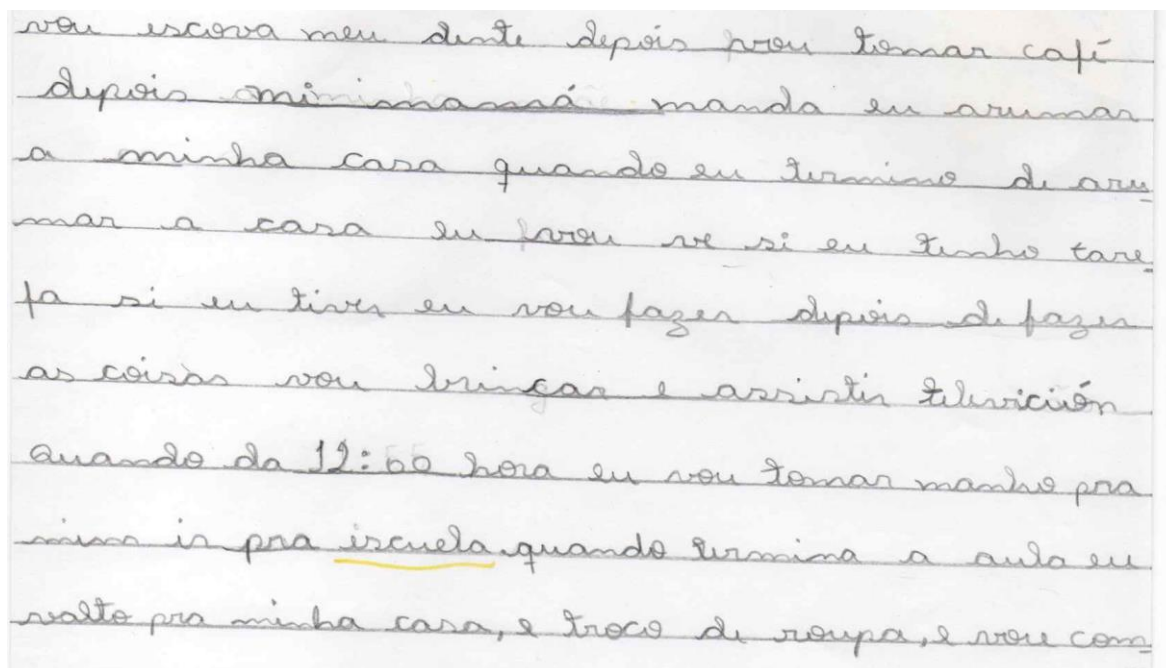 vou escova meu dente depois vou tomar café
depois miminamá manda eu arumar
a minha casa quando eu termino de aru-
mar a casa eu vou ve si eu tenho tare-
fa si eu tiver eu vou fazer depois de fazer
as coisas vou brincar e assistir televición
Quando da 12:00 hora eu vou tomar manho pra
mim ir pra iscuela quando termina a aula eu
volto pra minha casa, e troco de roupa, e vou com-